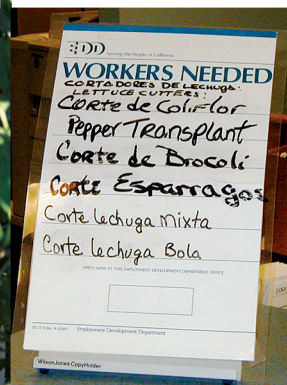 EDD
Serving the People of California
WORKERS NEEDED
CORTADORES DE LECHUGA:
LETTUCE CUTTERS:
Corte de Coliflor
Pepper Transplant
Corte de Brocoli
Corte Esparragos
Corte Lechuga Mixta
Corte Lechuga Bola
APPLY NOW AT THIS EMPLOYMENT DEVELOPMENT DEPARTMENT OFFICE
Employment Development Department
WilsonJones CopyHolder